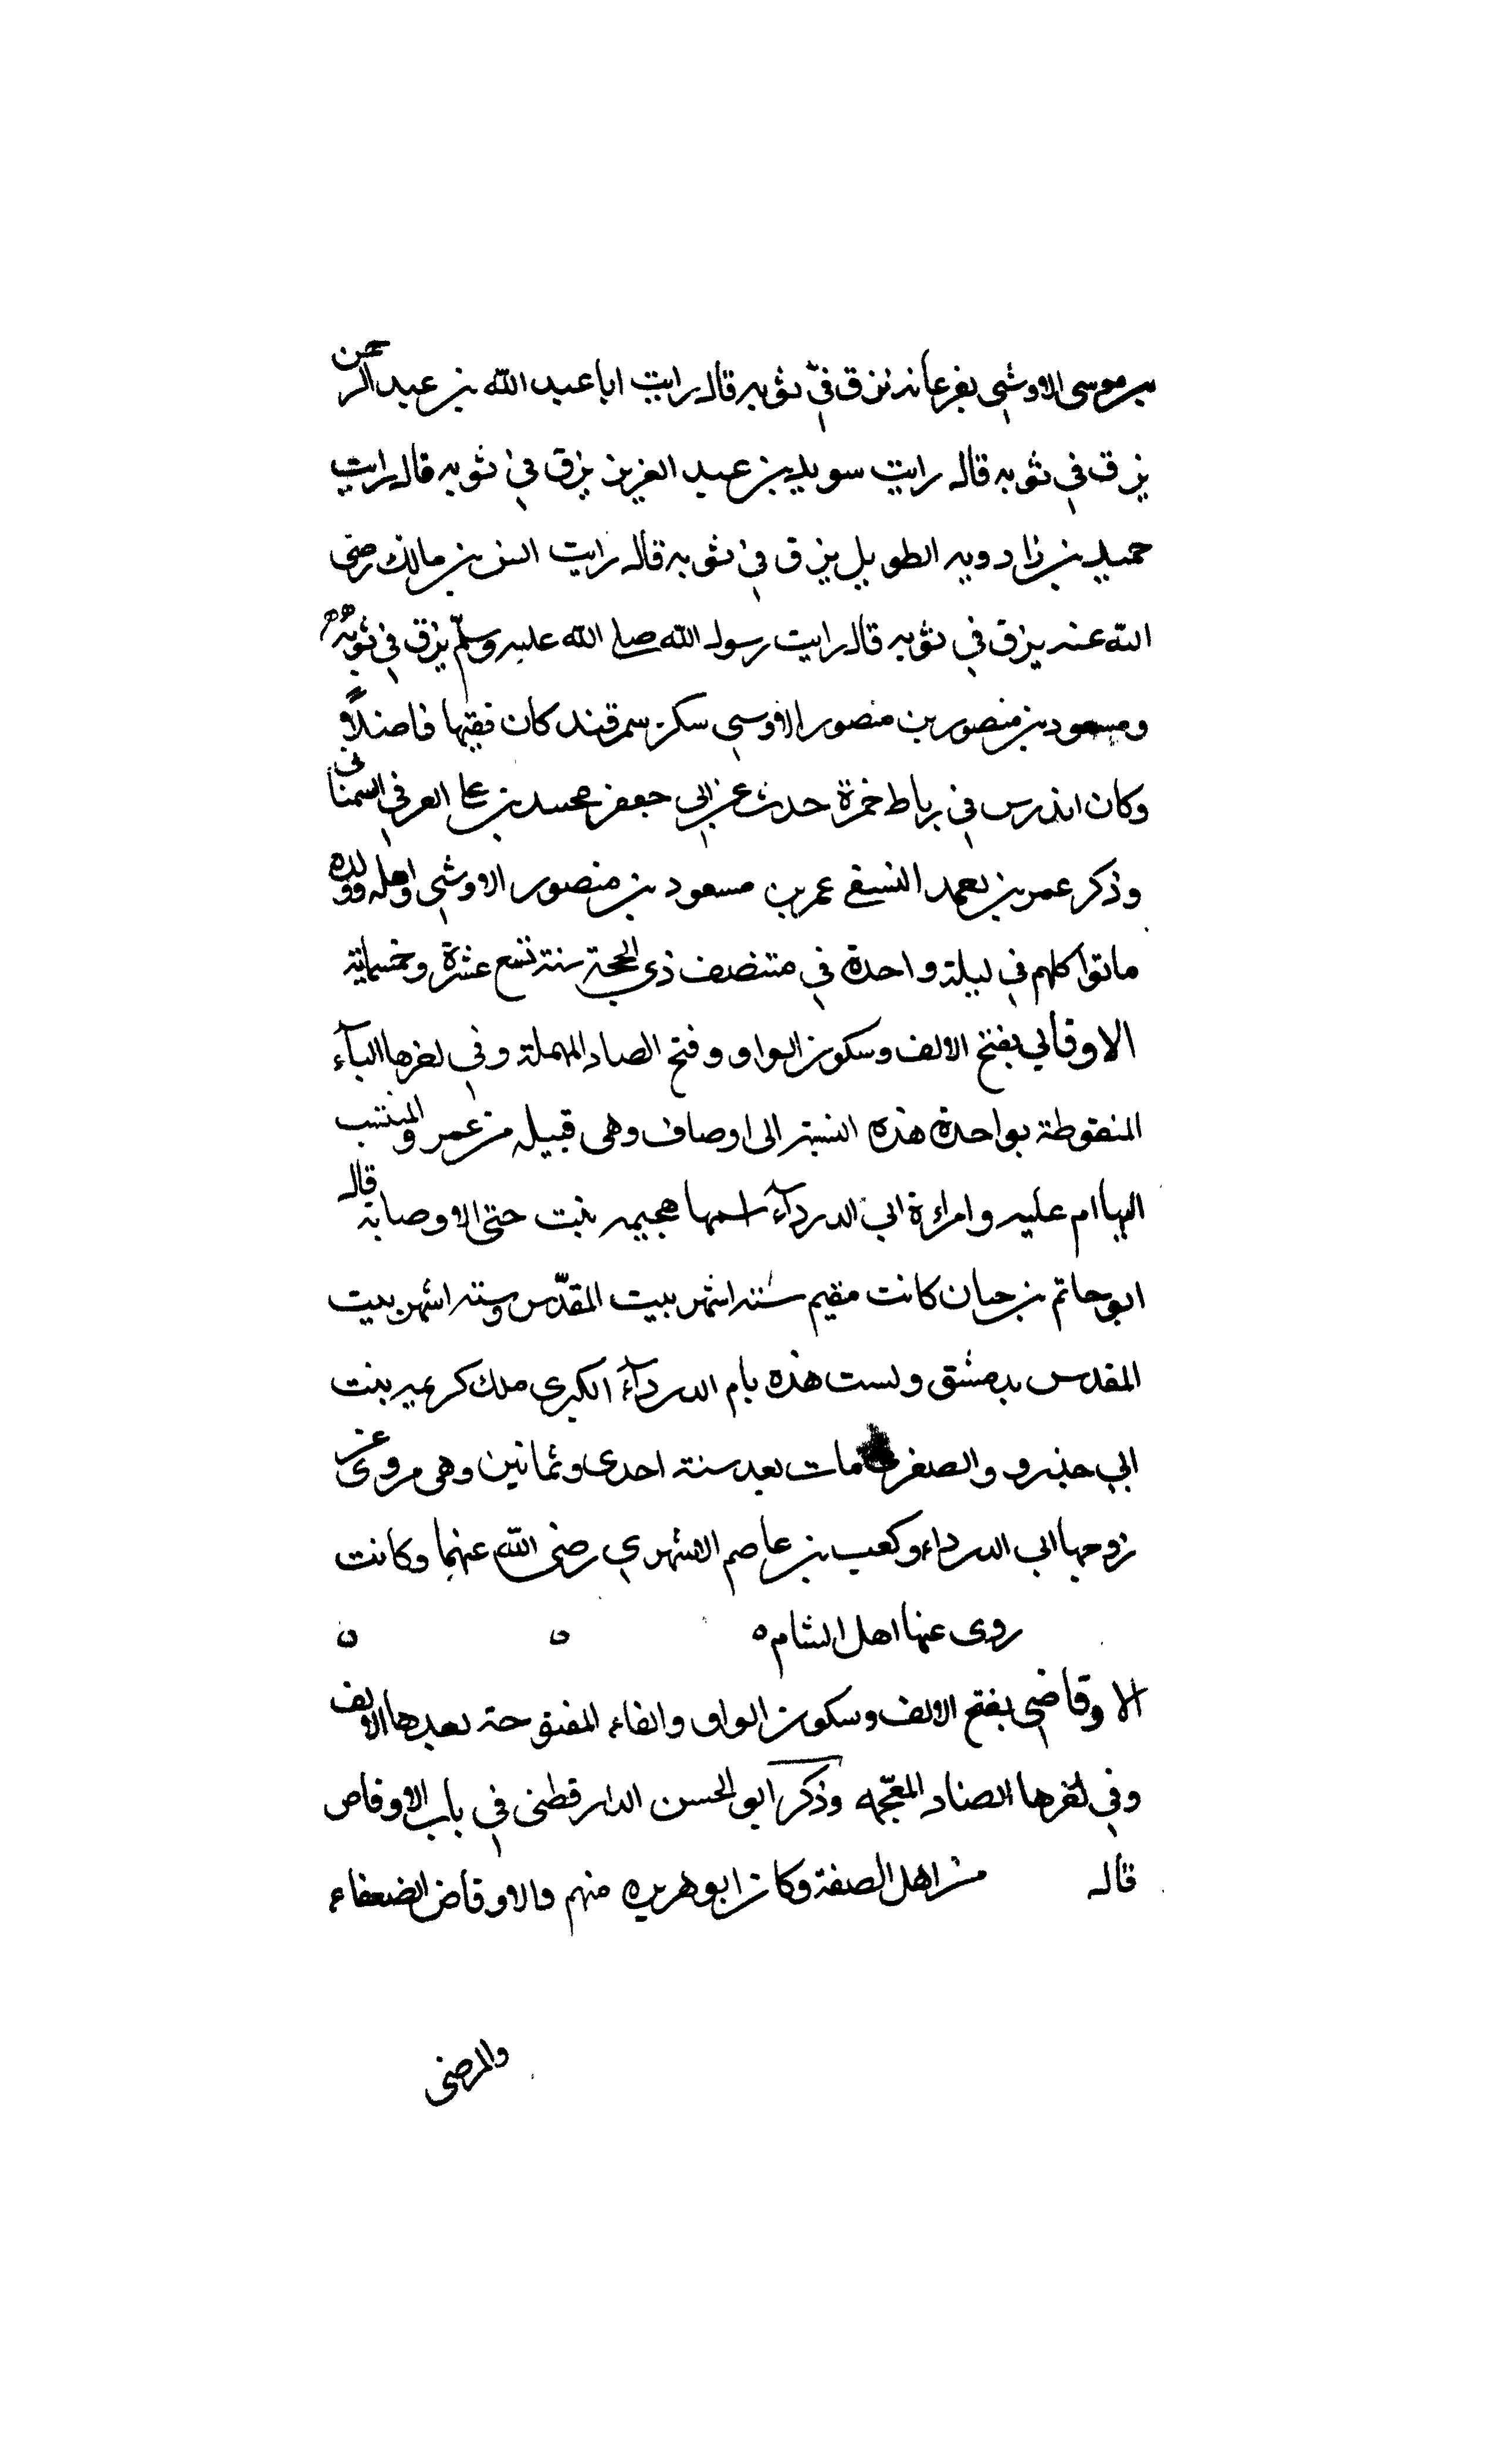 بن موسى الاوشي بفرغانه يبزق في ثوبه قال رايت ابا عبد الله بن عبد الرحمن
يبزق في ثوبه قال رايت سويد بن عبد العزيز يبزق في ثوبه قال رايت
حميد بن زادويه الطويل يبزق في ثوبه قال رايت انس بن مالك رضي
الله عنه يبزق في ثوبه قال رايت رسول الله صلى الله عليه وسلّم يبزق في ثوبه
ومسعود بن منصور بن منصور الاوسي سكن سمرقند كان فقيها فاضلاً
وكان يدرس في رباط خمرة حدث عن ابي جعفر محمد بن علي العرفي السمناني
وذكر عمر بن محمد النسفي عمر بن مسعود بن منصور الاوشي واهله وولده
ماتوا كلهم في ليلة واحدة في منتصف ذي الحجة سنة تسع عشرة وخمسمائة
الاوقابي بفتح الالف وسكون الواو وفتح الصاد المهملة وفي اخرها البآء
المنقوطة بواحدة هذه النسبة الى اوصاف وهي قبيله من عمر والمنتسب
اليها ام عليه وامراءة ابي الدردآء اسمها هجيمه بنت حتى الاوصابة قال
ابو حاتم بن حبان كانت مقيم ستة اشهر ببيت المقدّس وستة اشهر ببيت
المقدس بدمشق ولست هذه بام الدردآء الكبرى ملك كريمه بنت
ابي حذرو والصغرى مات بعد سنة احدى وثمانين وهي مروى عن
زوجها ابي الدرداء وكعب بن عاصم الاشهري رضي الله عنهما وكانت
روى عنها اهل الشام ه ه ه
الاوقاضي بفتح الالف وسكون الواو والفاء المفتوحة بعدها الالف
وفي اخرها الضاد المعجّمه وذكر ابو الحسن الدارقطني في باب الاوفاض
قال من اهل الصفة وكان ابو هريره منهم والاوفاض الضعفاء
والمرضى